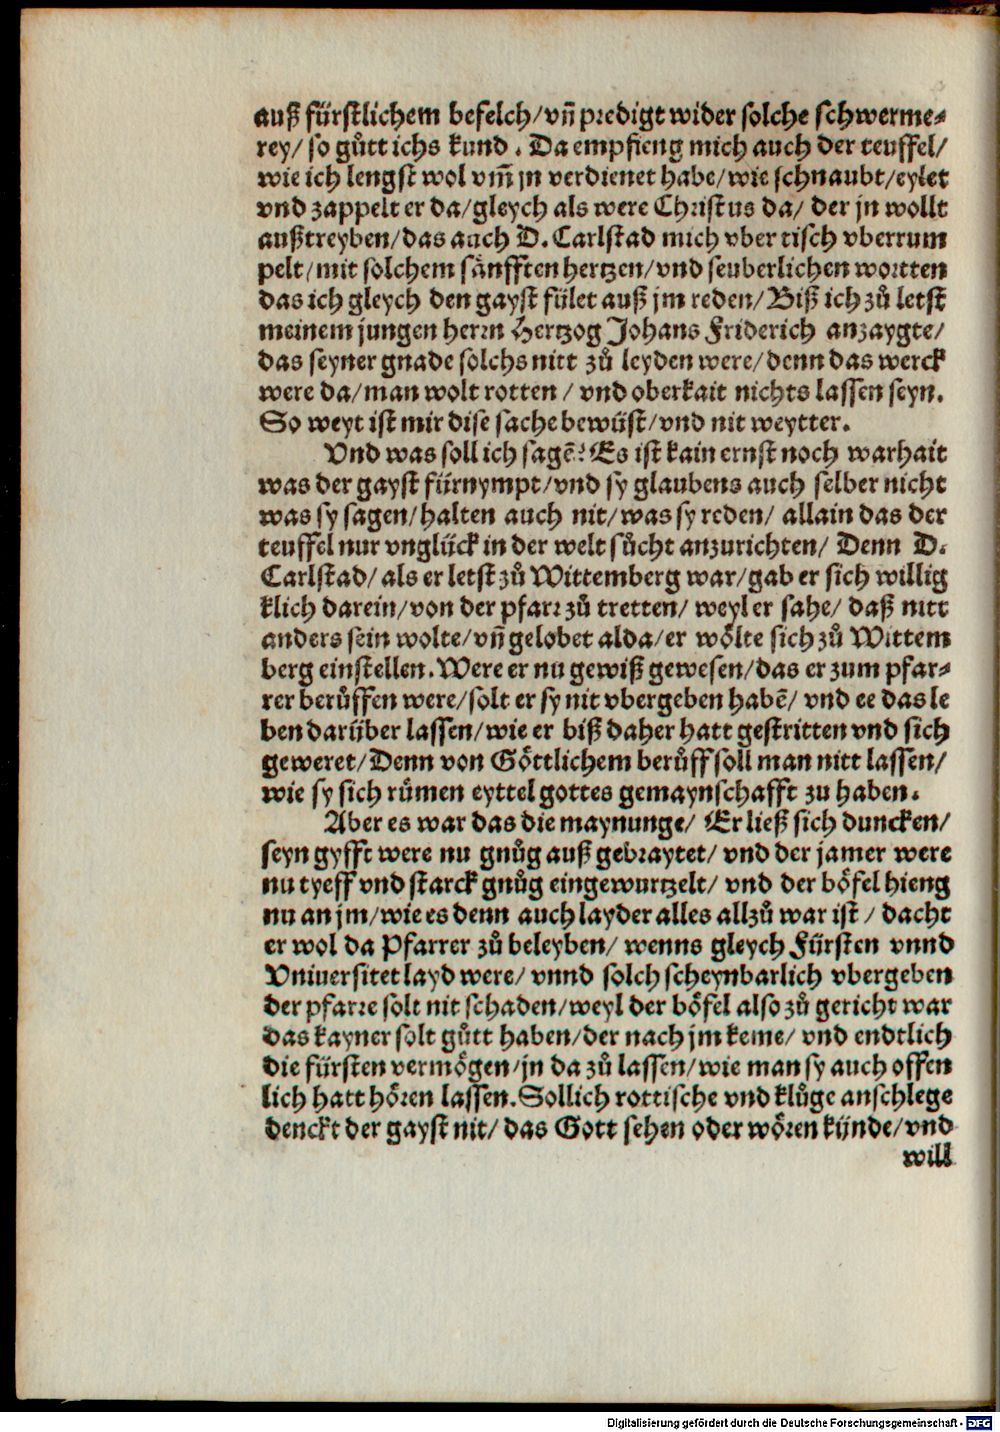 auß fürstlichem befelch/vñ predigt wider solche schwerme-
rey/ so gůtt ichs kund. Da empfieng mich auch der teuffel/
wie ich lengst wol vm̃ jn verdienet habe/wie schnaubt/eylet
vnd zappelt er da/gleych als were Christus da/ der jn wollt
außtreyben/das auch D. Carlstad mich vber tisch vberrum
pelt/mit solchem sänfften hertzen/vnd seuberlichen wortten
das ich gleych den gayst fület auß jm reden/Biß ich zů letst
meinem jungen herrn Hertzog Johans Friderich anzaygte/
das seyner gnade solchs nitt zů leyden were/denn das werck
were da/man wolt rotten / vnd oberkait nichts lassen seyn.
So weyt ist mir dise sache bewüst/vnd nit weytter.
Vnd was soll ich sagẽ? Es ist kain ernst noch warhait
was der gayst fürnympt/vnd sy glaubens auch selber nicht
was sy sagen/halten auch nit/was sy reden/ allain das der
teuffel nur vnglück in der welt sůcht anzurichten/ Denn D.
Carlstad/als er letst zů Wittemberg war/gab er sich willig
klich darein/von der pfarr zů tretten/ weyl er sahe/ daß nitt
anders sein wolte/vñ gelobet alda/er wölte sich zů Wittem
berg einstellen. Were er nu gewiß gewesen/das er zum pfar-
rer berůffen were/solt er sy nit vbergeben habẽ/ vnd ee das le
ben darüber lassen/wie er biß daher hatt gestritten vnd sich
geweret/Denn von Göttlichem berůff soll man nitt lassen/
wie sy sich rümen eyttel gottes gemaynschafft zu haben.
Aber es war das die maynunge/ Er ließ sich duncken/
seyn gyfft were nu gnůg auß gebraytet/ vnd der jamer were
nu tyeff vnd starck gnůg eingewurtzelt/ vnd der böfel hieng
nu an jm/wie es denn auch layder alles allzů war ist / dacht
er wol da Pfarrer zů beleyben/ wenns gleych Fürsten vnnd
Vniuersitet layd were/ vnnd solch scheynbarlich vbergeben
der pfarre solt nit schaden/weyl der böfel also zů gericht war
das kayner solt gůtt haben/der nach jm keme/ vnd endtlich
die fürsten vermögen/jn da zů lassen/wie man sy auch offen
lich hatt hören lassen. Sollich rottische vnd klůge anschlege
denckt der gayst nit/ das Gott sehen oder wören künde/vnd
will
Digitalisierung gefördert durch die Deutsche Forschungsgemeinschaft - DFG